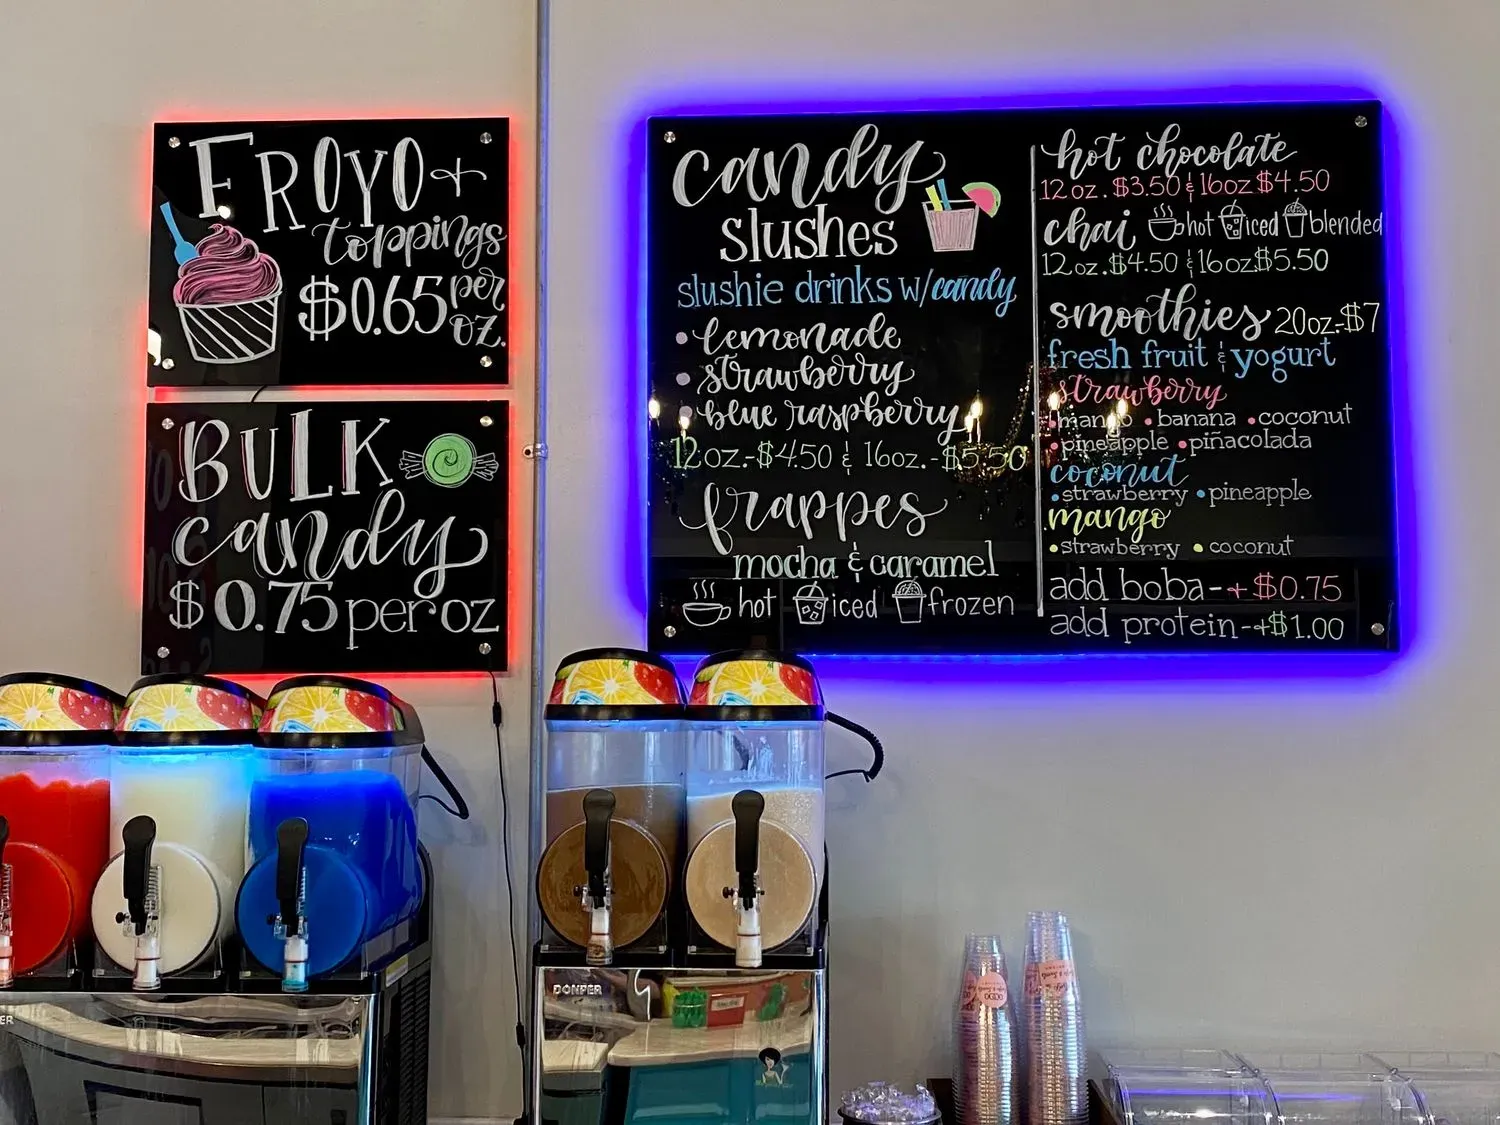 FROYO +
toppings
$0.65 per
oz.
BULK
candy
$0.75 per oz
candy
slushes
slushie drinks w/candy
• lemonade
• strawberry
• blue raspberry
12oz.-$4.50 & 16oz.-$5.50
frappes
mocha & caramel
hot iced frozen
hot chocolate
12 oz. $3.50 & 16oz $4.50
chai hot iced blended
12oz.$4.50 & 16oz$5.50
smoothies 20oz-$7
fresh fruit & yogurt
strawberry
•mango •banana •coconut
•pineapple •piñacolada
coconut
•strawberry •pineapple
mango
•strawberry •coconut
add boba-+$0.75
add protein-+$1.00
DONPER